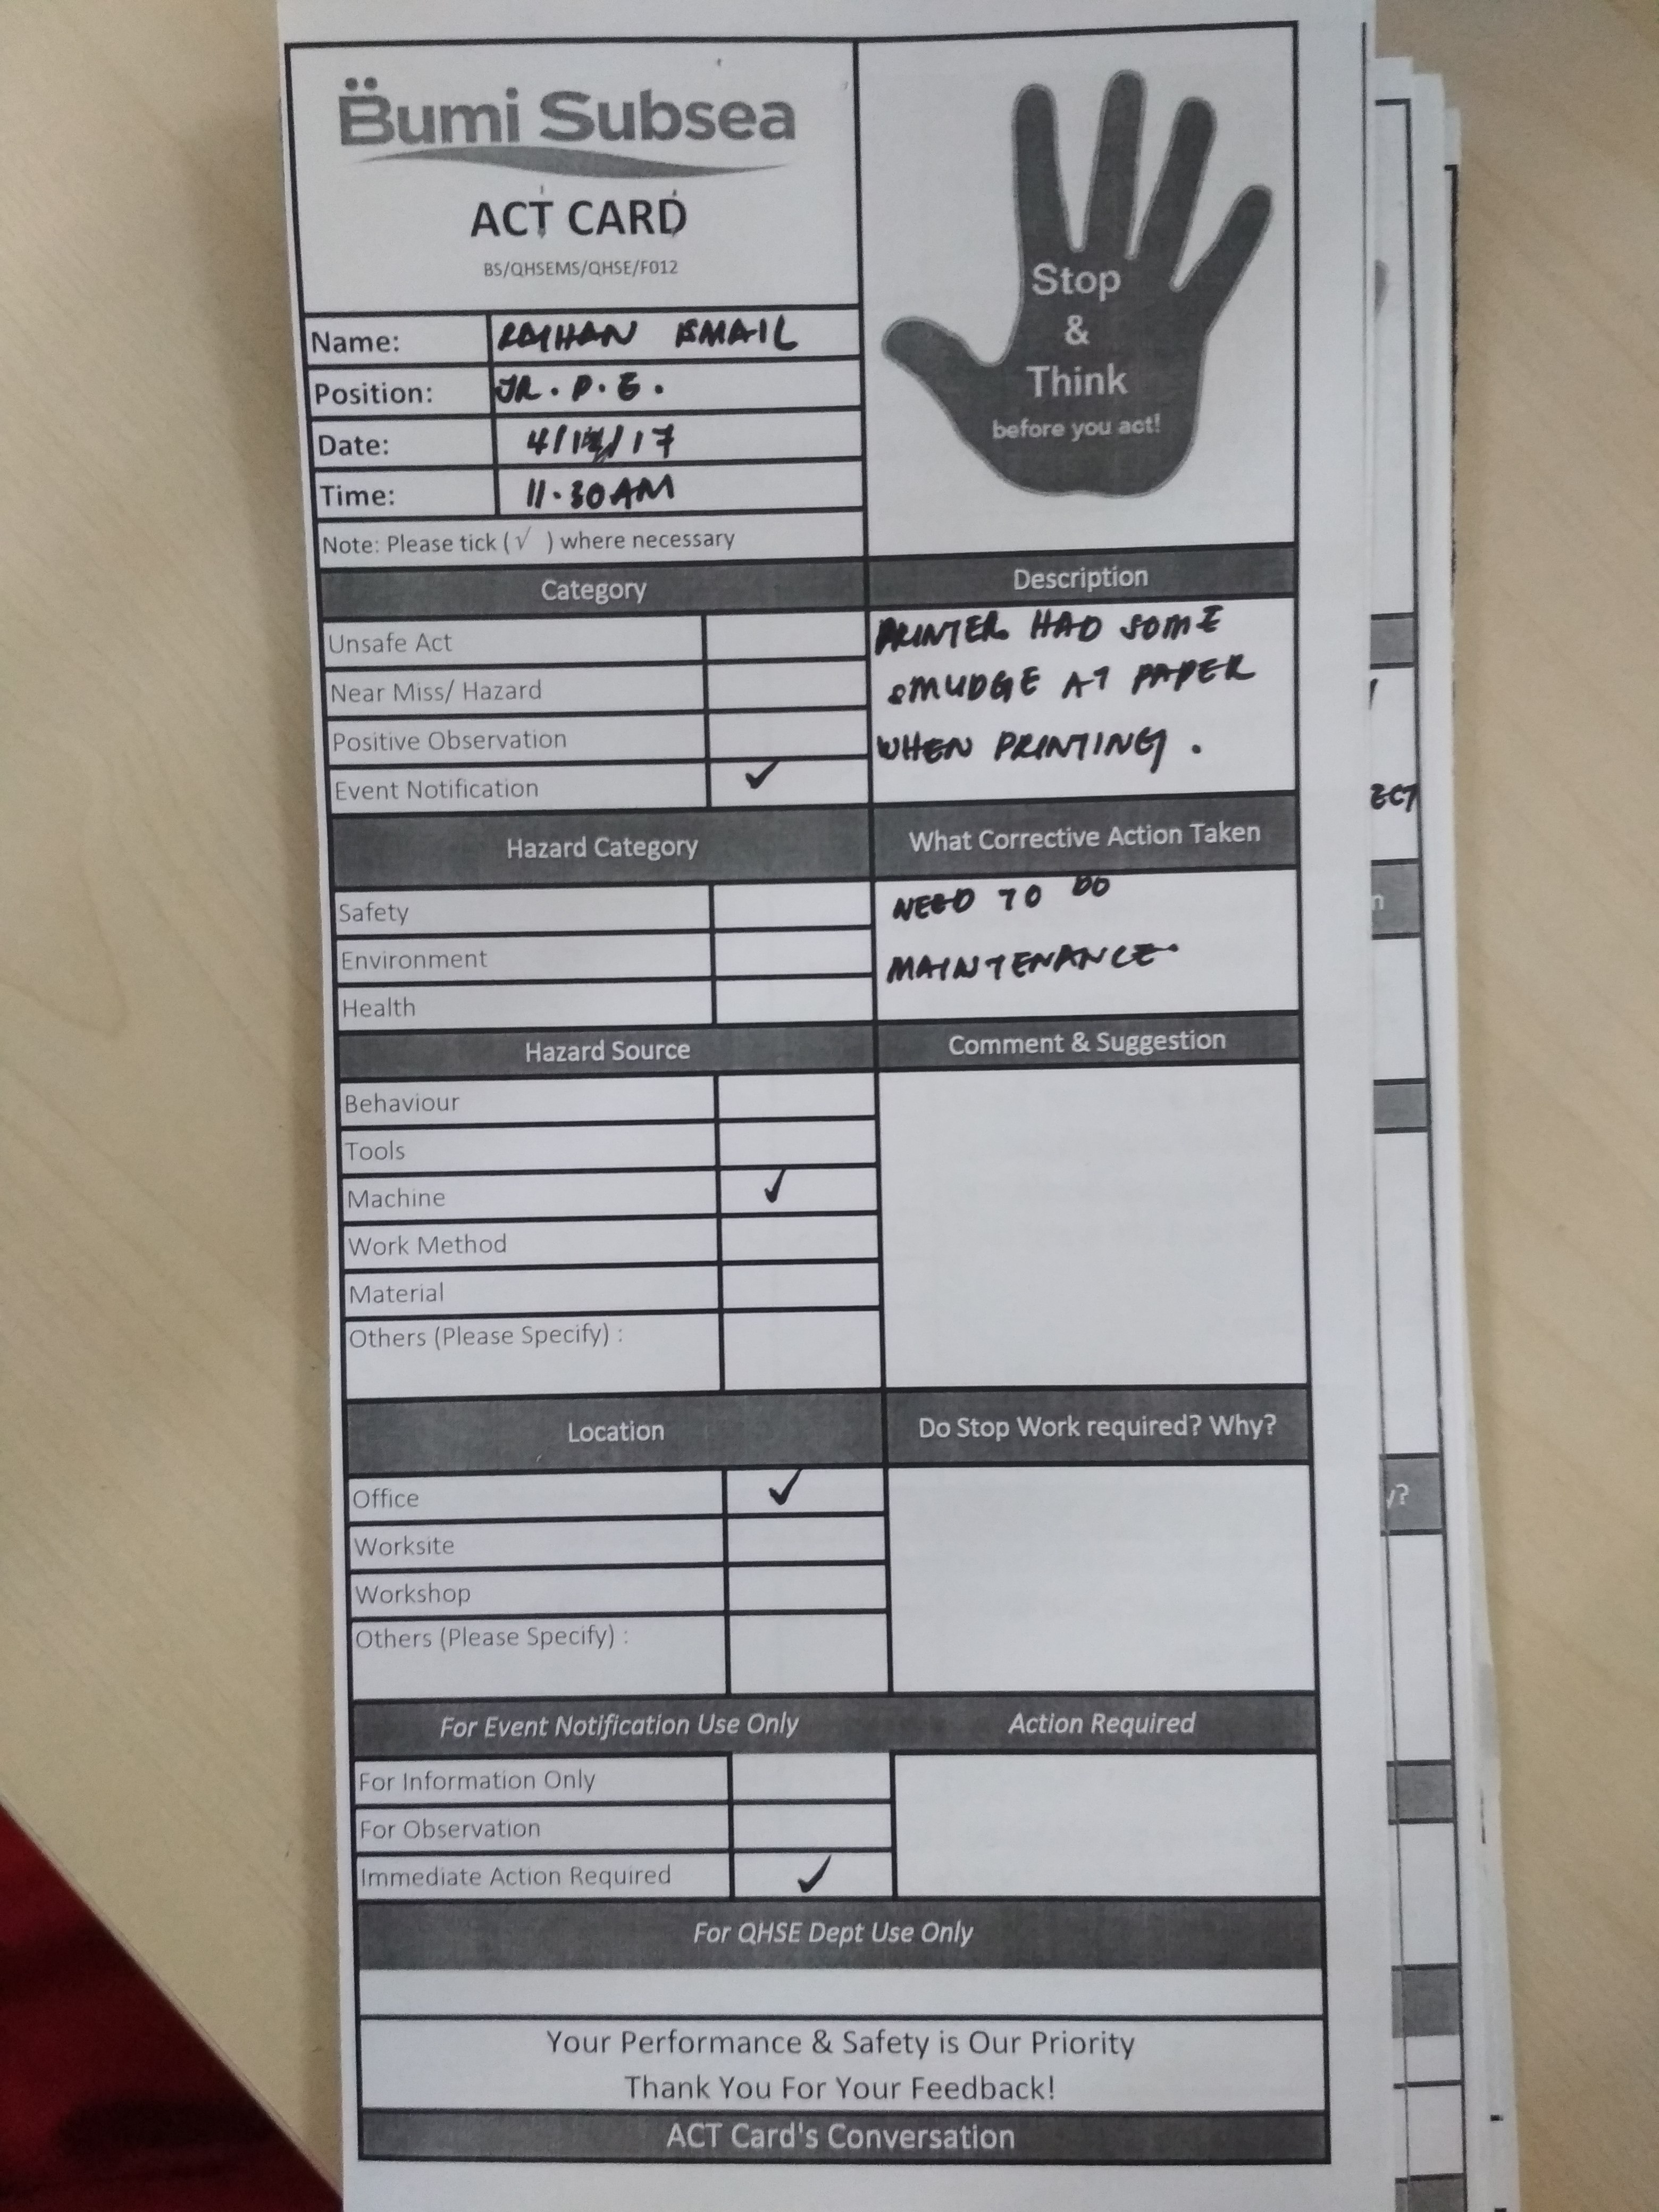 Bumi Subsea
ACT CARD
BS/QHSEMS/QHSE/F012
Stop
&
Think
before you act!
Name: RAIHAN ISMAIL
Position: JR. P.E.
Date: 4/12/17
Time: 11.30AM
Note: Please tick (√ ) where necessary
Category
Unsafe Act
Near Miss/ Hazard
Positive Observation
Event Notification ✓
Description
PRINTER HAD SOME
SMUDGE AT PAPER
WHEN PRINTING.
Hazard Category
Safety
Environment
Health
What Corrective Action Taken
NEED TO DO
MAINTENANCE.
Hazard Source
Behaviour
Tools
Machine ✓
Work Method
Material
Others (Please Specify) :
Comment & Suggestion
Location
Office ✓
Worksite
Workshop
Others (Please Specify) :
Do Stop Work required? Why?
For Event Notification Use Only
For Information Only
For Observation
Immediate Action Required ✓
Action Required
For QHSE Dept Use Only
Your Performance & Safety is Our Priority
Thank You For Your Feedback!
ACT Card's Conversation